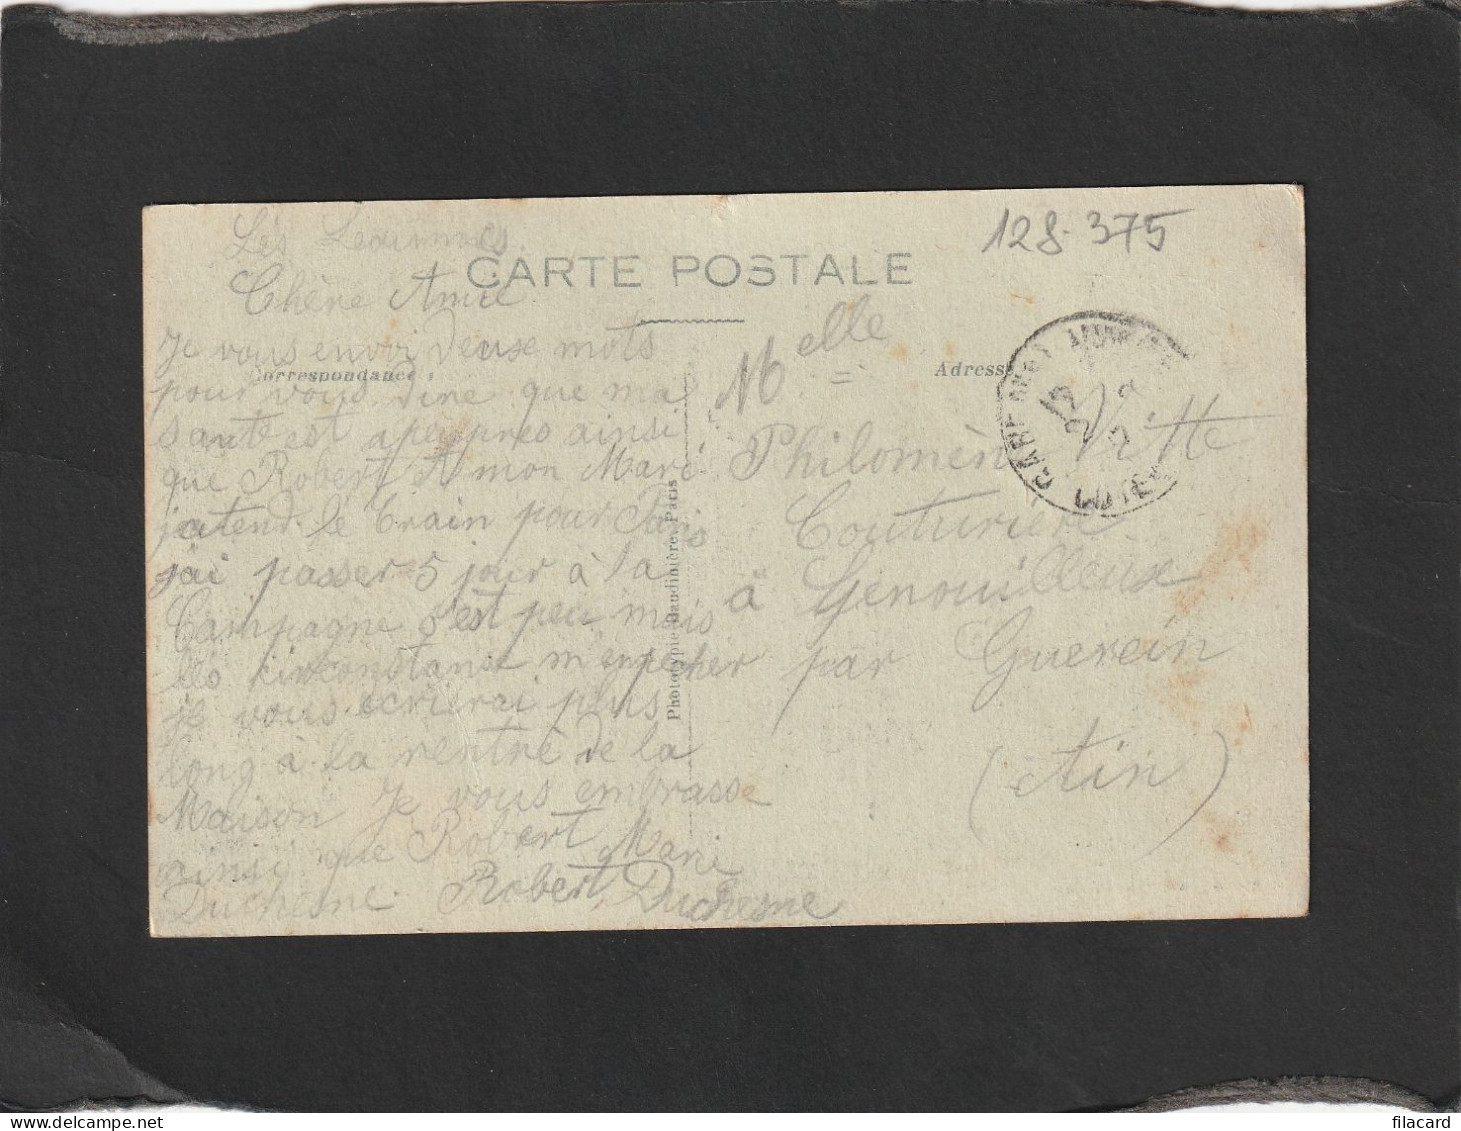 128-375
Les
CARTE POSTALE
Chère Amie
Je vous envoi deuse mots
Correspondance
pour vous dire que ma
santé est apeuprès ainsi
que Robert A mon Mari
j'atend le train pour Paris
jai passer 5 jour à la
Campagne s'est peu mais
les kirconstanse m'enpecher
je vous ecrierai plus
long à la rentré de la
Maison Je vous embrasse
ainsi que Robert Marie
Duchesne Robert Duchesne
Photographie Baudinière, Paris
Adresse
Melle
Philomène Vitte
Couturière
à Genouilleuse
par Guerein
(Ain)
filacard
www.delcampe.net